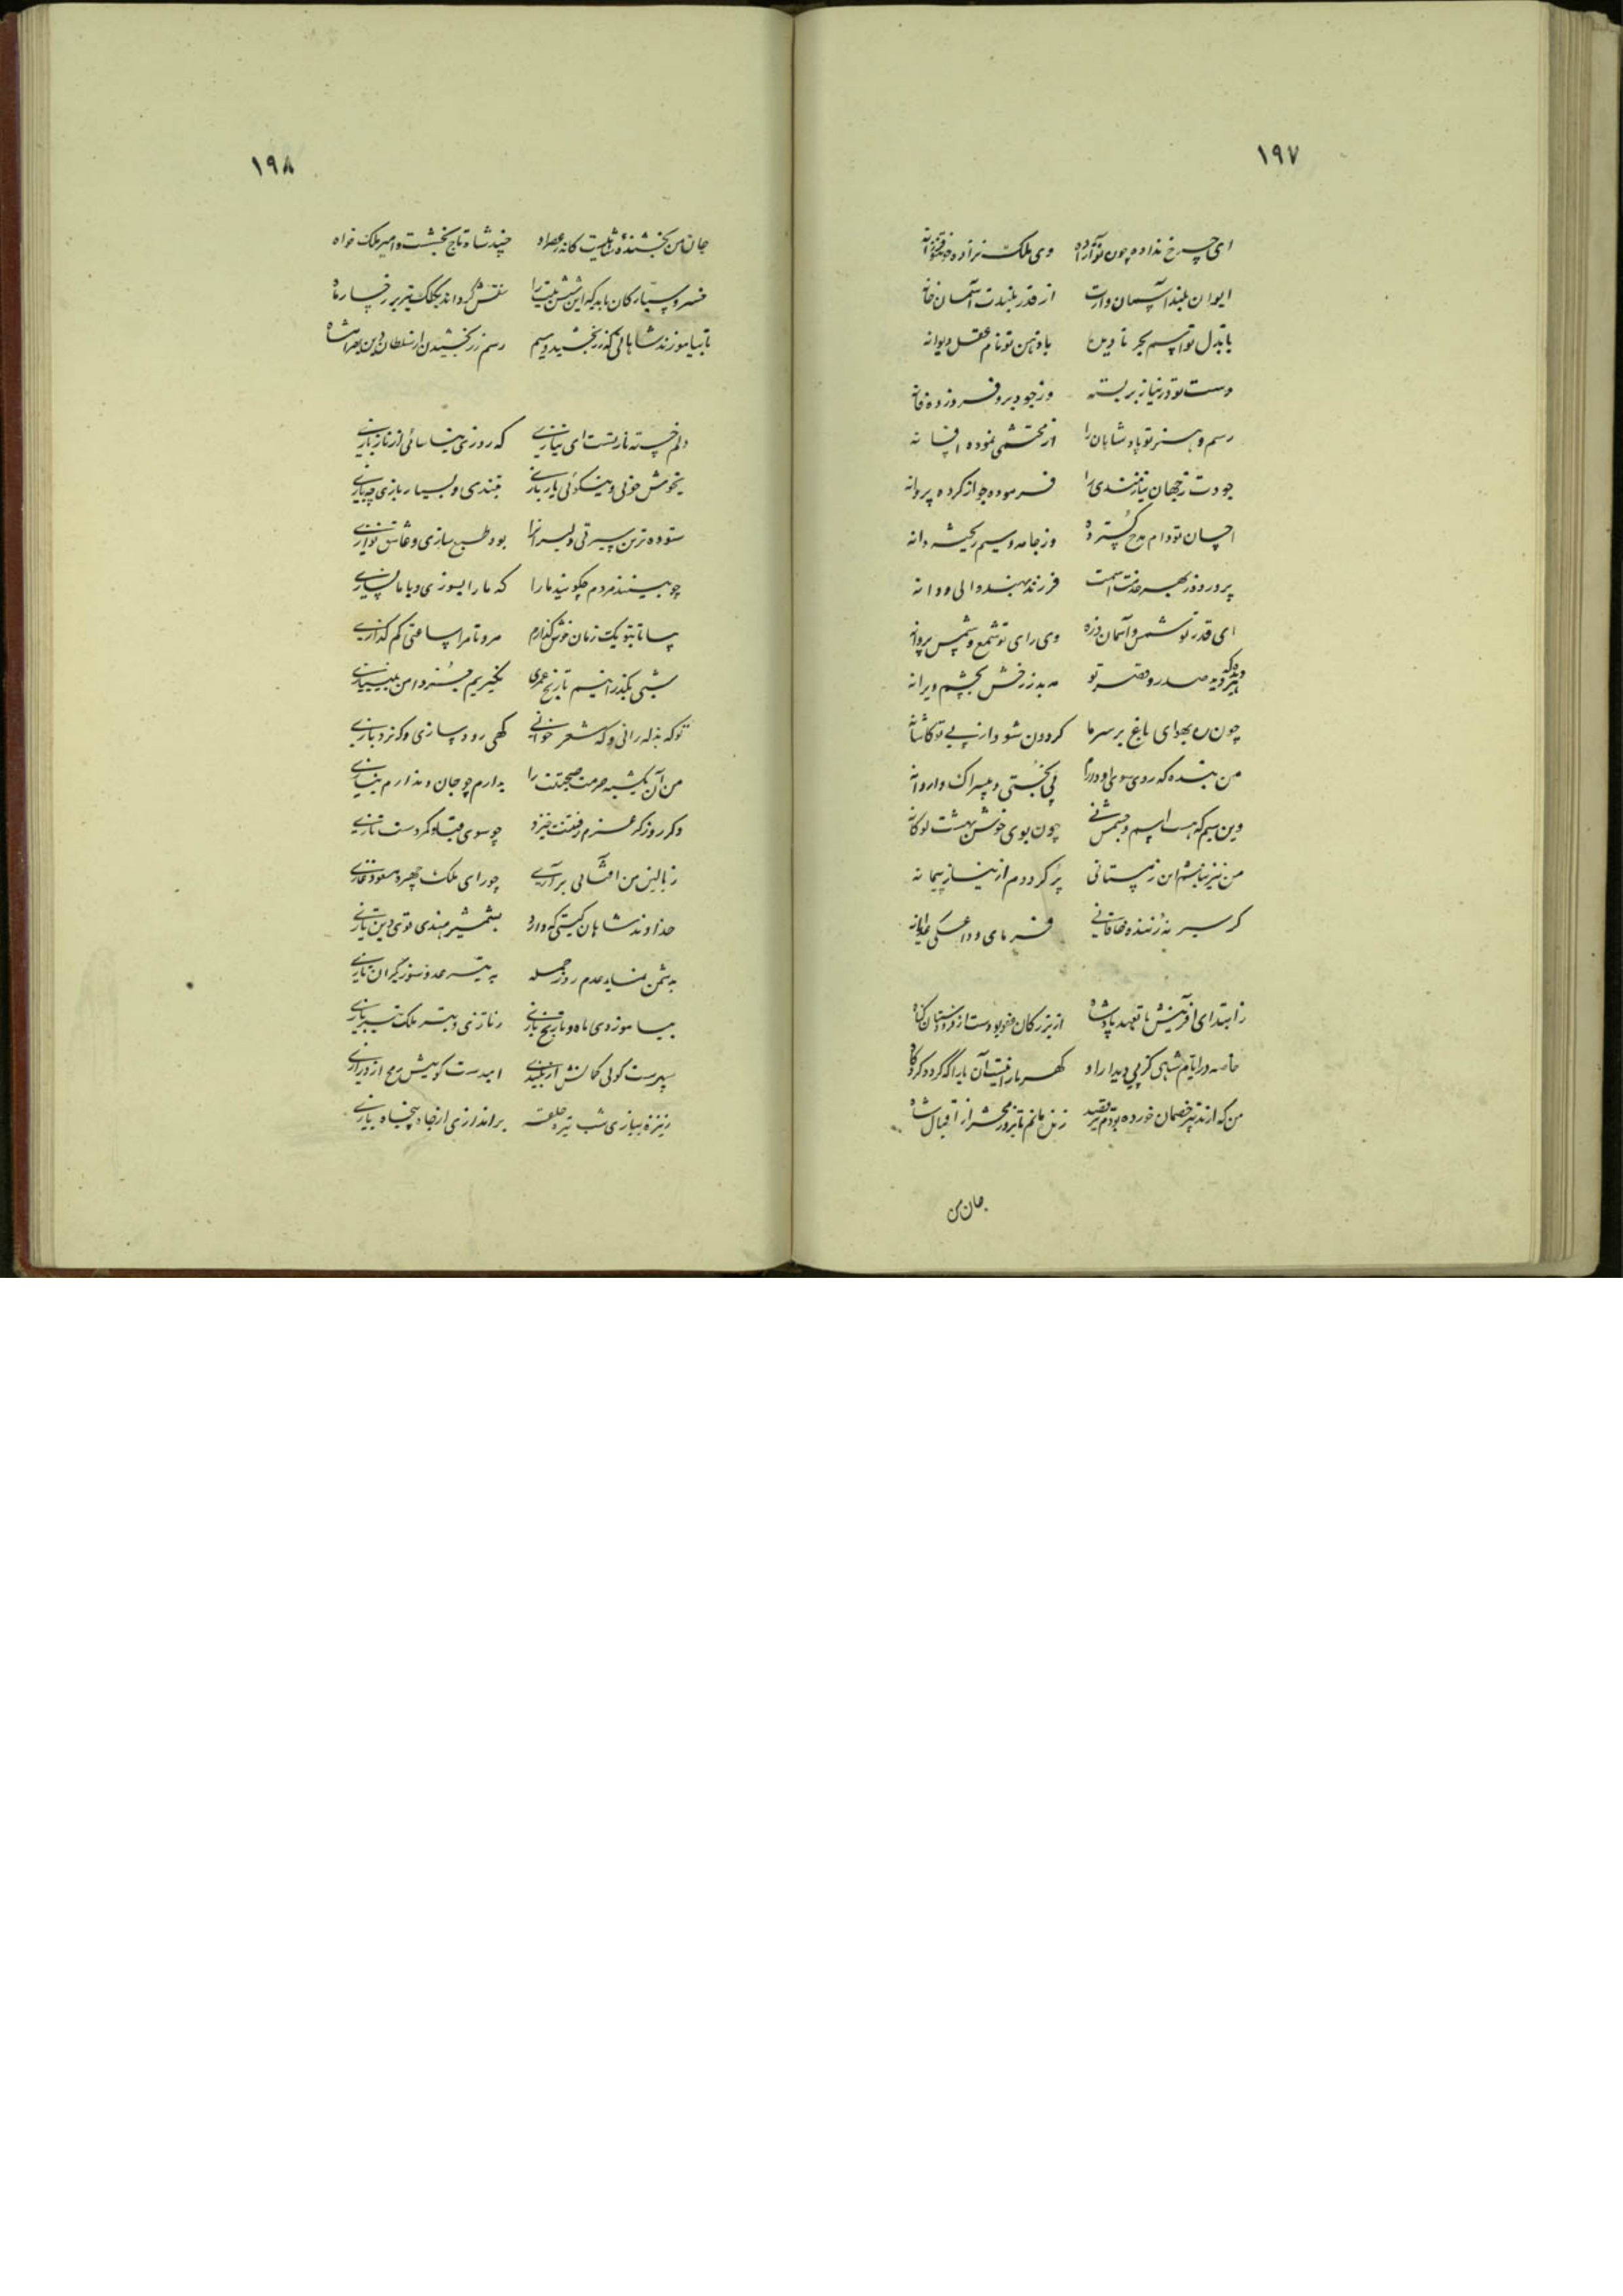 ۱۹۷
ای چرخ نداده چون تو آزاده وی ملک نزاده چون تو فرزانه
ایوان بلند آسمان وارت از قدر بلندت آسمان خانه
با بذل تو اسم بحر نادیده با ذهن تو نام عقل دیوانه
دست تو در نیاز بر بسته وز جود برو فروزده فانه
رسم و هنر تو پادشاهان را از محتشمی نموده افسانه
جودت ز جهان نیازمندی را فرموده جواز کرده پروانه
احسان تو دام مدح گسترده وز جامه و سیم ریخته دانه
پرورده ز بهر خدمت اسمت فرزند بهند والی و رانه
ای قدر تو شمس و آسمان ذره وی رای تو شمع و شمس پروانه
دیده که صدر و قصر تو مه بدرخش بچشم ویرانه
چون ره بهوای باغ بر سرما گردون شود از پی تو کاشانه
من بنده که روی سوی او دارم بی بختی و بیسراک و اروانه
وین سیم که هست اسم و جسمش نی چون بوی خوش بهشت لوکانه
من نیز نباشم این زمستانی پر گردد از نیاز پیمانه
گر سیر نه ژنده خاقانی فرمای وداعکی غریبانه
ز ابتدای آفرینش تا بعهد پادشاه از بزرگان عفو بودست از فرودستان گناه
خاصه در ایام شاهی کز پی دیدار او کهربا را نیست آن یارا که گردد گرد کاه
من که از تدبیر خصمان خورده بودم تیر قصد زنده مانم تا بروز محشر از اقبال شاه
جان من
۱۹۸
جان من بخشنده شاهیست کاندر عصر او چند شاه تاج بخشست و امیر ملک خواه
خسرو سیارگان باید که این شش بیت را نقش گرداند بکلک تیر بر رخسار ماه
تا بیاموزند شاهانی که زر بخشید و سیم رسم زر بخشیدن از سلطان دین بهرامشاه
دلم خسته نازتست ای نیازی که روزی نیاسائی از ناز بازی
بخوش خوئی و نیکوئی یار یاری بتندی و بسیار بازی چه بازی
ستوده ترین سیرتی دلبران را بود طبع سازی و عاشق نوازی
چو بینند مردم چگویند ما را که ما را بسوزی و با ما نسازی
بیا تا بتو یک زمان خوش گذارم مرو تا مرا ساعتی کم گدازی
شبی بگذرانیم تاریخ عمری نگیریم جز دامن بی نیازی
تو که بذله رانی و که شعر خوانی گهی رود سازی و گه نرد بازی
من آن یکشبه حرمت صحبتت را بدارم چو جان و ندارم ببازی
دگر روز گر عزم رفتنت خیزد چو سوی قبا و کمر دست تازی
ز بالین من آفتابی برآری چو رای ملک چهره مسعود غازی
خداوند شاهان گیتی که دارد بشمشیر هندی قوی دین تازی
بدشمن نماید عدم روز حمله به تیر عدو سوز گیران تازی
بیاموزدی ماه و تاریخ بازی
سپرست گوئی کمانش از بلندی امیدست گوئیش رمح از درازی
ز نیزه بیازی شب تیره حلقه